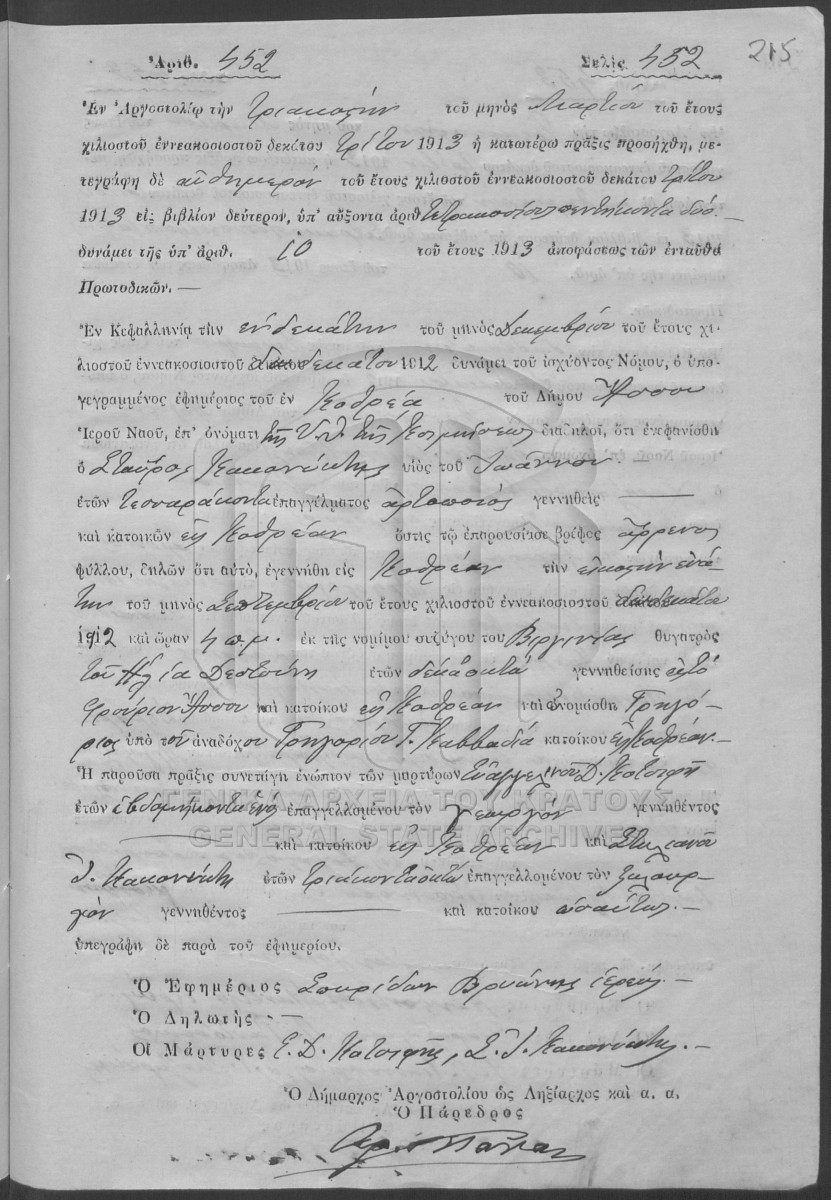 Ἀριθ. 452 Σελὶς 452 215
Ἐν Ἀργοστολίῳ τὴν Τριακοστὴν τοῦ μηνὸς Μαρτίου τοῦ ἔτους
χιλιοστοῦ ἐννεακοσιοστοῦ δεκάτου Τρίτου 1913 ἡ κατωτέρω πρᾶξις προσήχθη, με-
τεγράφη δὲ αὐθημερὸν τοῦ ἔτους χιλιοστοῦ ἐννεακοσιοστοῦ δεκάτου Τρίτου
1913 εἰς βιβλίον δεύτερον, ὑπ' αὔξοντα ἀριθ Τετρακοσιοστὸν πεντήκοντα δύο –
δυνάμει τῆς ὑπ' ἀριθ. 10 τοῦ ἔτους 1913 ἀποφάσεως τῶν ἐνταῦθα
Πρωτοδικῶν. —
Ἐν Κεφαλληνίᾳ τὴν ἑνδεκάτην τοῦ μηνὸς Δεκεμβρίου τοῦ ἔτους χι-
λιοστοῦ ἐννεακοσιοστοῦ δωδεκάτου 1912 δυνάμει τοῦ ἰσχύοντος Νόμου, ὁ ὑπο-
γεγραμμένος ἐφημέριος τοῦ ἐν Κοθρέᾳ τοῦ Δήμου Ἄσσου
Ἱεροῦ Ναοῦ, ἐπ' ὀνόματι τῆς Ὑ.Θ. τῆς Κοιμήσεως διαδηλοῖ, ὅτι ἐνεφανίσθη
ὁ Σταῦρος Κακονύκτης υἱὸς τοῦ Ἰωάννου –
ἐτῶν τεσσαράκοντα ἐπαγγέλματος ἀρτοποιὸς γεννηθεὶς —
καὶ κατοικῶν εἰς Κοθρέαν ὅστις τῷ ἐπαρουσίασε βρέφος ἄρρενος
φύλλου, δηλῶν ὅτι αὐτὸ, ἐγεννήθη εἰς Κοθρέαν τὴν εἰκοστὴν ἐνά-
την τοῦ μηνὸς Σεπτεμβρίου τοῦ ἔτους χιλιοστοῦ ἐννεακοσιοστοῦ δωδεκάτου
1912 καὶ ὥραν 4 π.μ. ἐκ τῆς νομίμου συζύγου του Βιργινίας θυγατρὸς
τοῦ Ἠλία Δεστούνη ἐτῶν δεκαοκτὼ γεννηθείσης εἰς τὸ
Φρούριον Ἄσσου καὶ κατοίκου εἰς Κοθρέαν καὶ ὠνομάσθη Γρηγό-
ριος ὑπὸ τοῦ ἀναδόχου Γρηγορίου Γ. Καββαδία κατοίκου εἰς Κοθρέαν. –
Ἡ παροῦσα πρᾶξις συνετάγη ἐνώπιον τῶν μαρτύρων Εὐαγγελινοῦ Δ. Κατσιφῆ
ἐτῶν ἑβδομήκοντα ἑνὸς ἐπαγγελλομένου τὸν γεωργὸν γεννηθέντος
— καὶ κατοίκου εἰς Κοθρέαν καὶ Στυλιανοῦ
Ἰ. Κακονύκτη ἐτῶν Τριάκοντα ὀκτὼ ἐπαγγελλομένου τὸν ξυλουρ-
γὸν γεννηθέντος — καὶ κατοίκου ὡσαύτως. –
ὑπεγράφη δὲ παρὰ τοῦ ἐφημερίου.
Ὁ Ἐφημέριος Σπυρίδων Βρυώνης ἱερεύς –
Ὁ Δηλωτὴς –
Οἱ Μάρτυρες Ε. Δ. Κατσιφῆς, Σ. Ἰ. Κακονύκτης. –
Ὁ Δήμαρχος Ἀργοστολίου ὡς Ληξίαρχος καὶ α. α.
Ὁ Πάρεδρος
ΓΕΝΙΚΑ ΑΡΧΕΙΑ ΤΟΥ ΚΡΑΤΟΥΣ
GENERAL STATE ARCHIVES